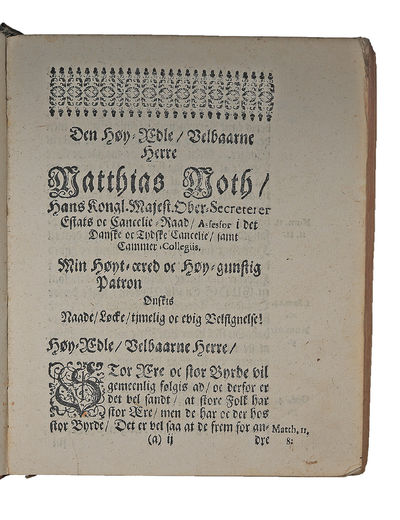 Den Høy-Ædle/ Velbaarne
Herre
Matthias Moth/
Hans Kongl. Majest. Ober-Secreterer
Estats oc Cancelie-Raad/ Assessor i det
Danske oc Tydske Cancelie/ samt
Cammer-Collegiis.
Min Høyt-æred oc Høy-gunstig
Patron
Ønskis
Naade/ Løcke/ timelig oc evig Velsignelse!
Høy-Ædle/ Velbaarne Herre/
STor Ære oc stor Byrde vil
gemeenlig følgis ad/ oc derfor er
det vel sandt/ at store Folk har
stor Ære/ men de har oc der hos
stor Byrde/ Det er vel saa at de frem for an-
Matth. 11,
(a) ij
dre
8.